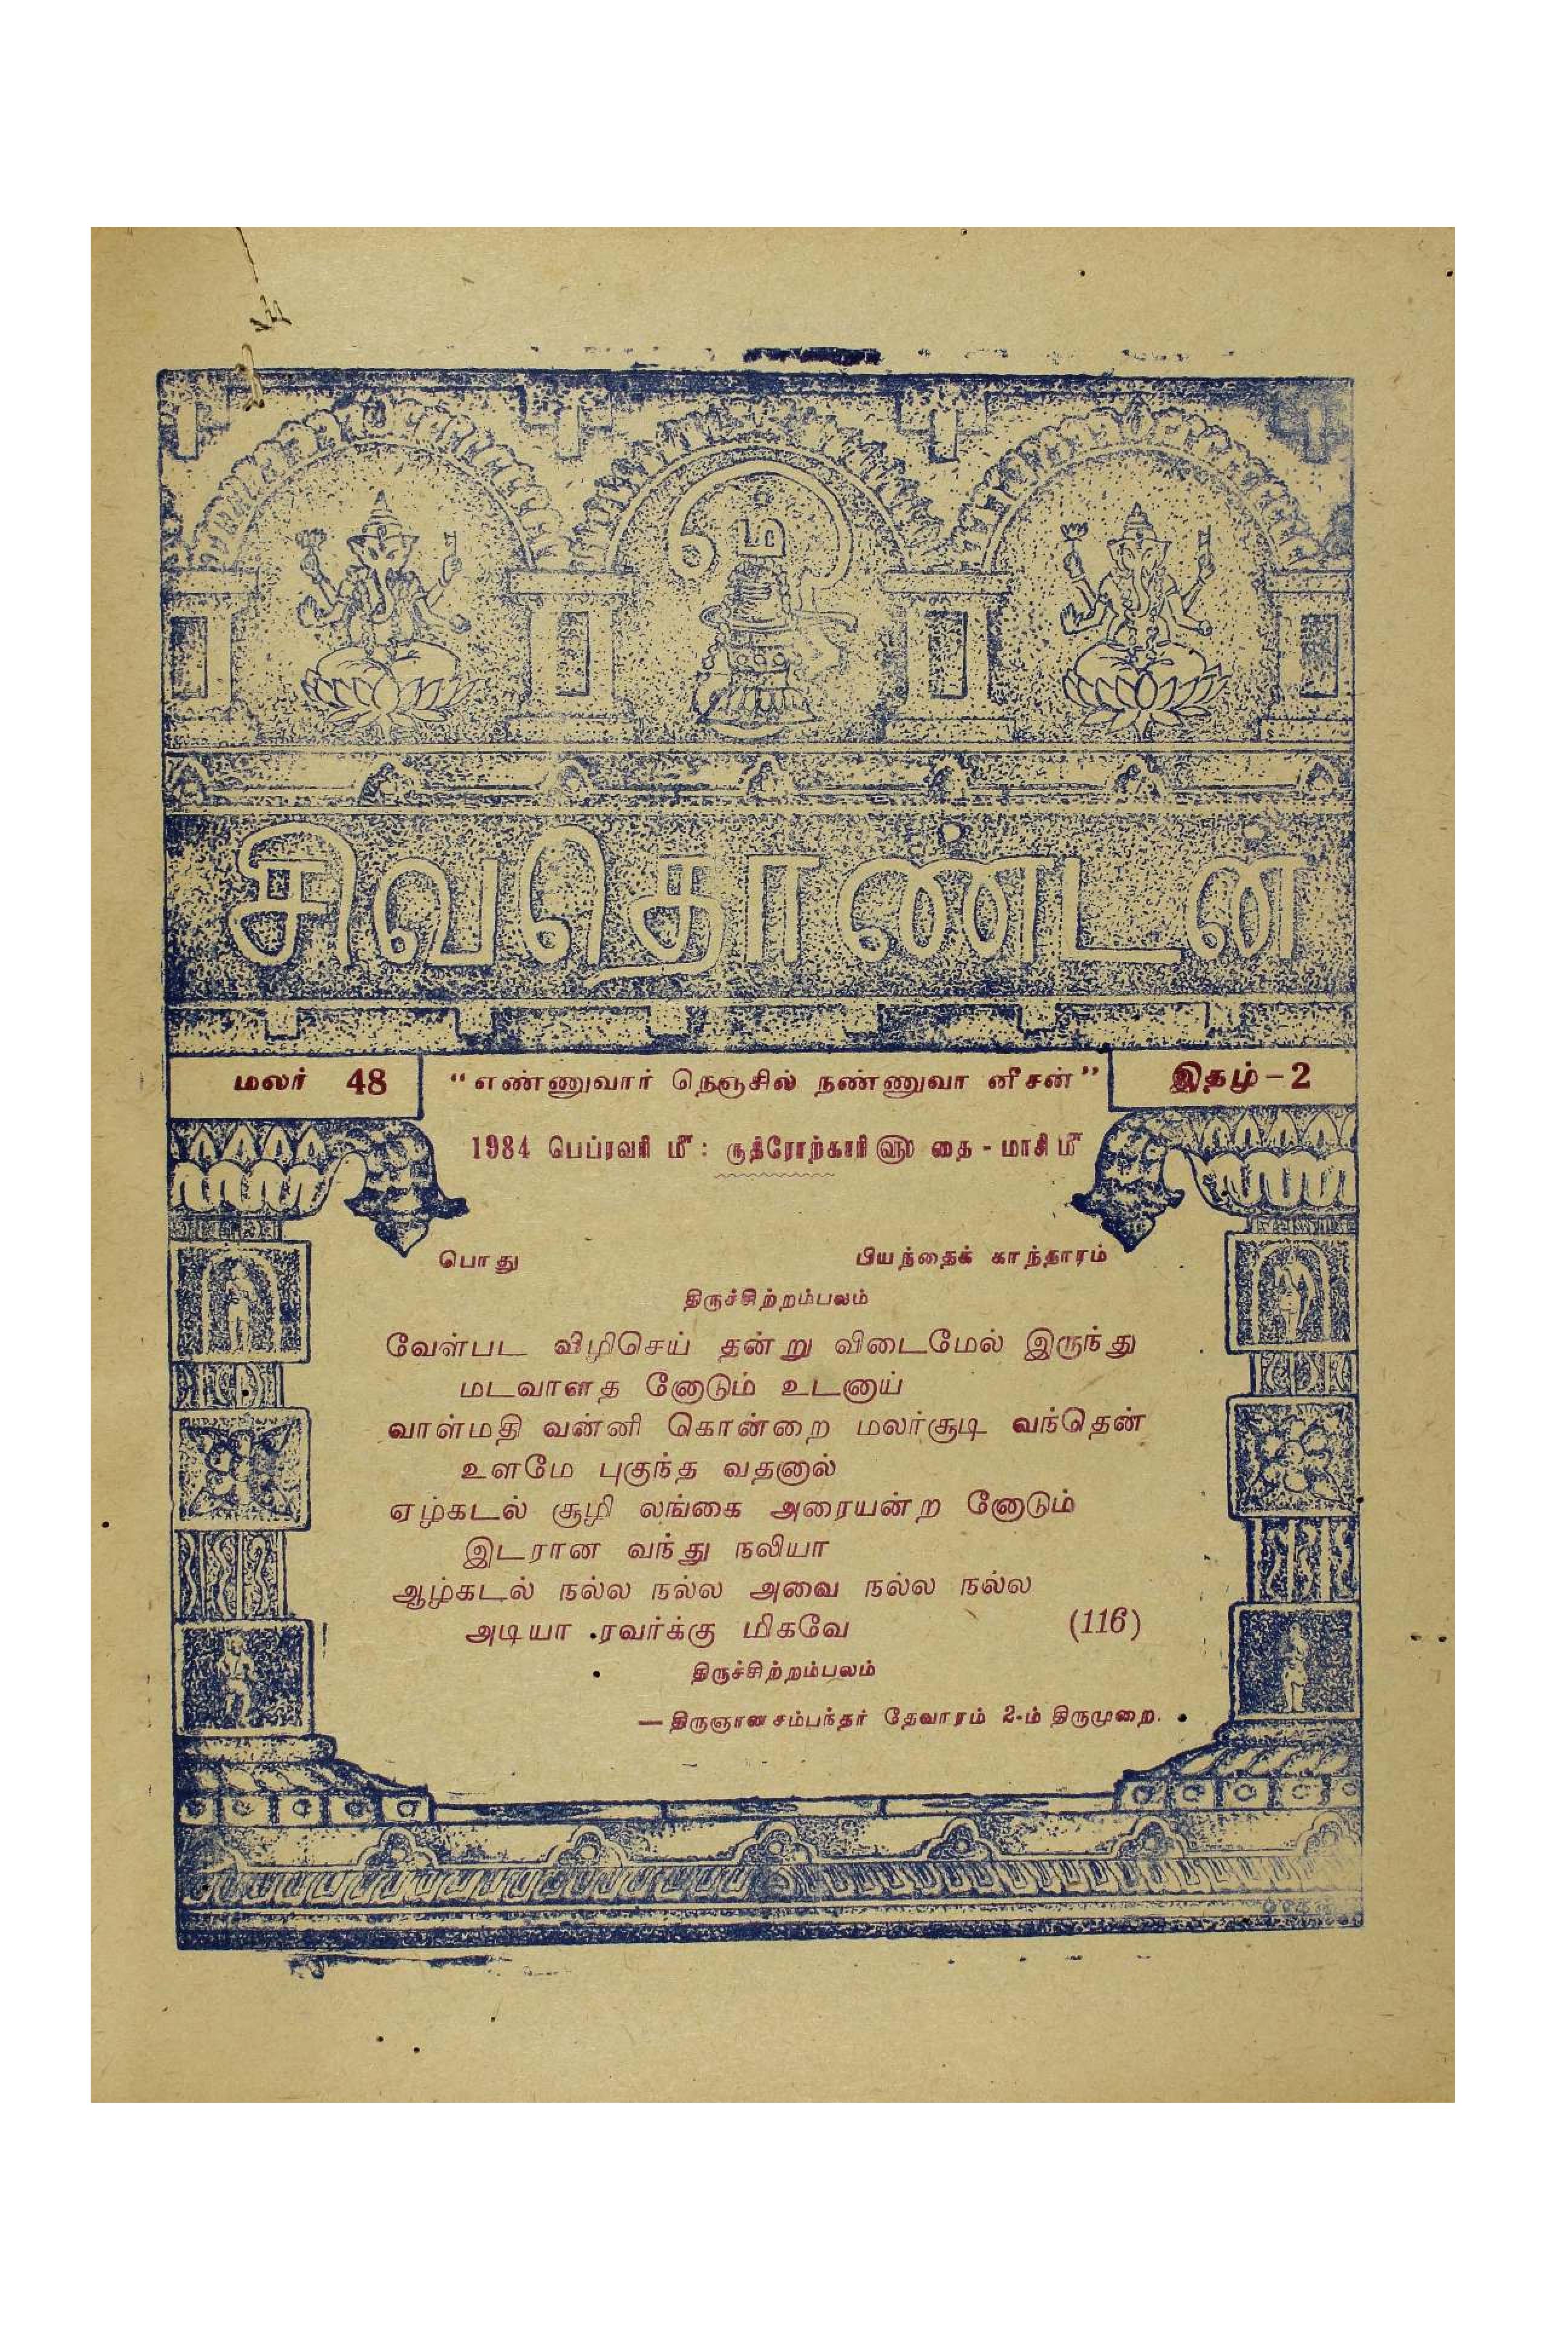 ஓம்
சிவதொண்டன்
மலர் 48 “எண்ணுவார் நெஞ்சில் நண்ணுவா னீசன்” இதழ் – 2
1984 பெப்ரவரி மீ : ருத்ரோற்காரி௵ தை - மாசி மீ
பொது பியந்தைக் காந்தாரம்
திருச்சிற்றம்பலம்
வேள்பட விழிசெய் தன்று விடைமேல் இருந்து
மடவாளத னோடும் உடனாய்
வாள்மதி வன்னி கொன்றை மலர்சூடி வந்தென்
உளமே புகுந்த வதனால்
ஏழ்கடல் சூழி லங்கை அரையன்ற னோடும்
இடரான வந்து நலியா
ஆழ்கடல் நல்ல நல்ல அவை நல்ல நல்ல
அடியா ரவர்க்கு மிகவே (116)
திருச்சிற்றம்பலம்
— திருஞானசம்பந்தர் தேவாரம் 2-ம் திருமுறை.